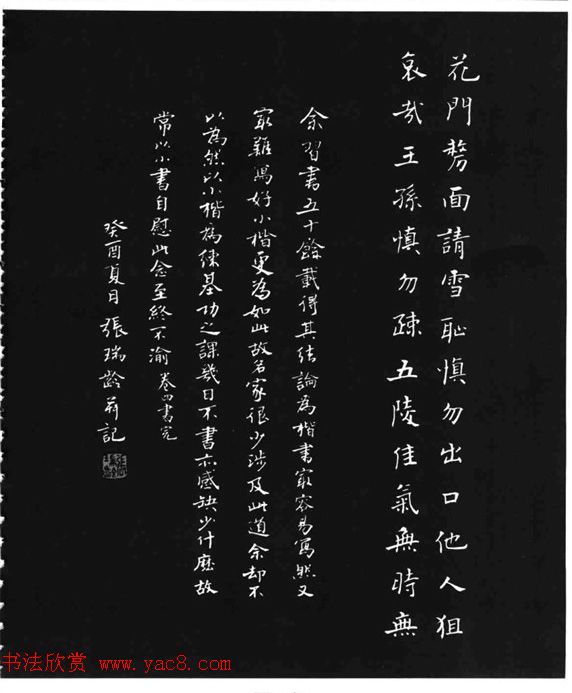 花門剺面請雪恥慎勿出口他人狙
哀哉王孫慎勿疎五陵佳氣無時無
余習書五十餘載得其結論為楷書最容易寫然又
最難寫好小楷更為如此故名家很少涉及此道余却不
以為然以小楷為練基功之課幾日不書亦感缺少什麼故
常以小書自慰此念至終不渝 卷四書完
癸酉夏月 張瑞齡并記
书法欣赏 www.yac8.com